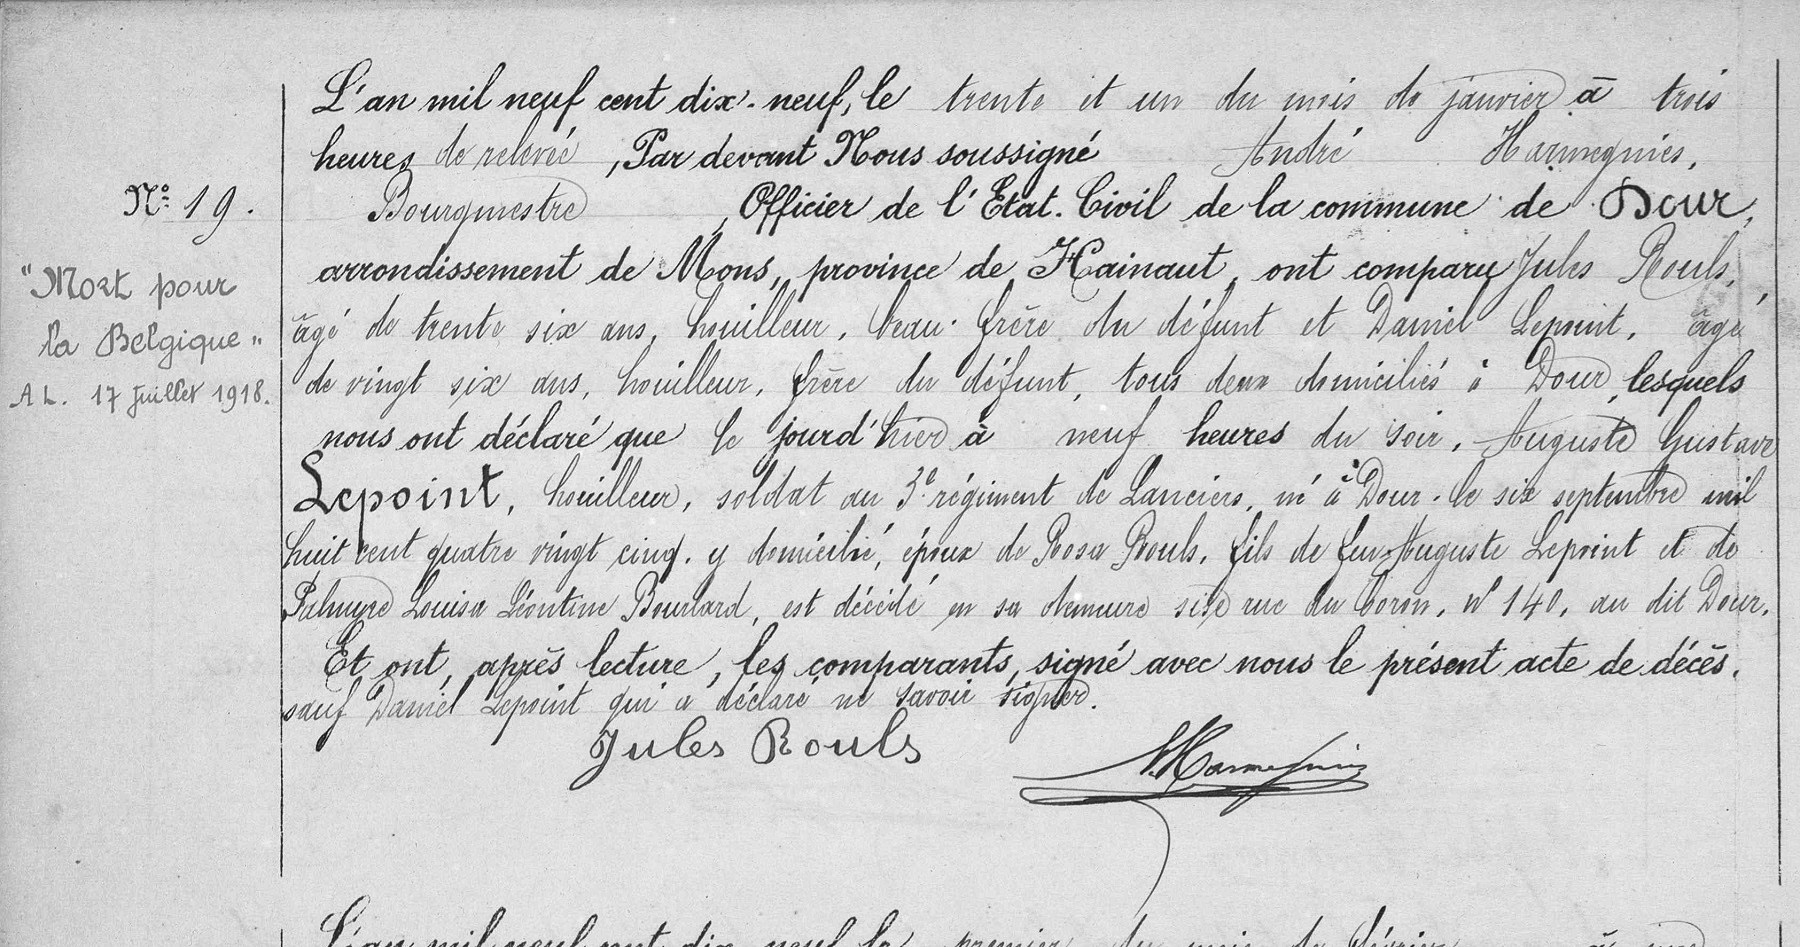 L'an mil neuf cent dix-neuf, le trente et un du mois de janvier à trois
heures de relevée, Par devant Nous soussigné André Harmegnies,
Nº 19.
Bourgmestre, Officier de l'Etat-Civil de la commune de Dour,
arrondissement de Mons, province de Hainaut, ont comparu Jules Rouls,
"Mort pour
la Belgique"
A L. 17 Juillet 1918.
âgé de trente six ans, houilleur, beau-frère du défunt et Daniel Lepoint, âgé
de vingt six ans, houilleur, frère du défunt, tous deux domiciliés à Dour, lesquels
nous ont déclaré que le jourd'hier à neuf heures du soir, Auguste Gustave
Lepoint, houilleur, soldat au 3e régiment de Lanciers, né à Dour. le six septembre mil
huit cent quatre vingt cinq. y domicilié, époux de Rosa Rouls, fils de feu Auguste Lepoint et de
Palmyre Louisa Léontine Bourlard, est décédé en sa demeure sise rue du Coron, nº 140, au dit Dour.
Et ont, après lecture, les comparants, signé avec nous le présent acte de décès.
sauf Daniel Lepoint qui a déclaré ne savoir signer.
Jules Rouls
A. Harmegnies
L'an mil neuf cent dix-neuf le premier du mois de février à